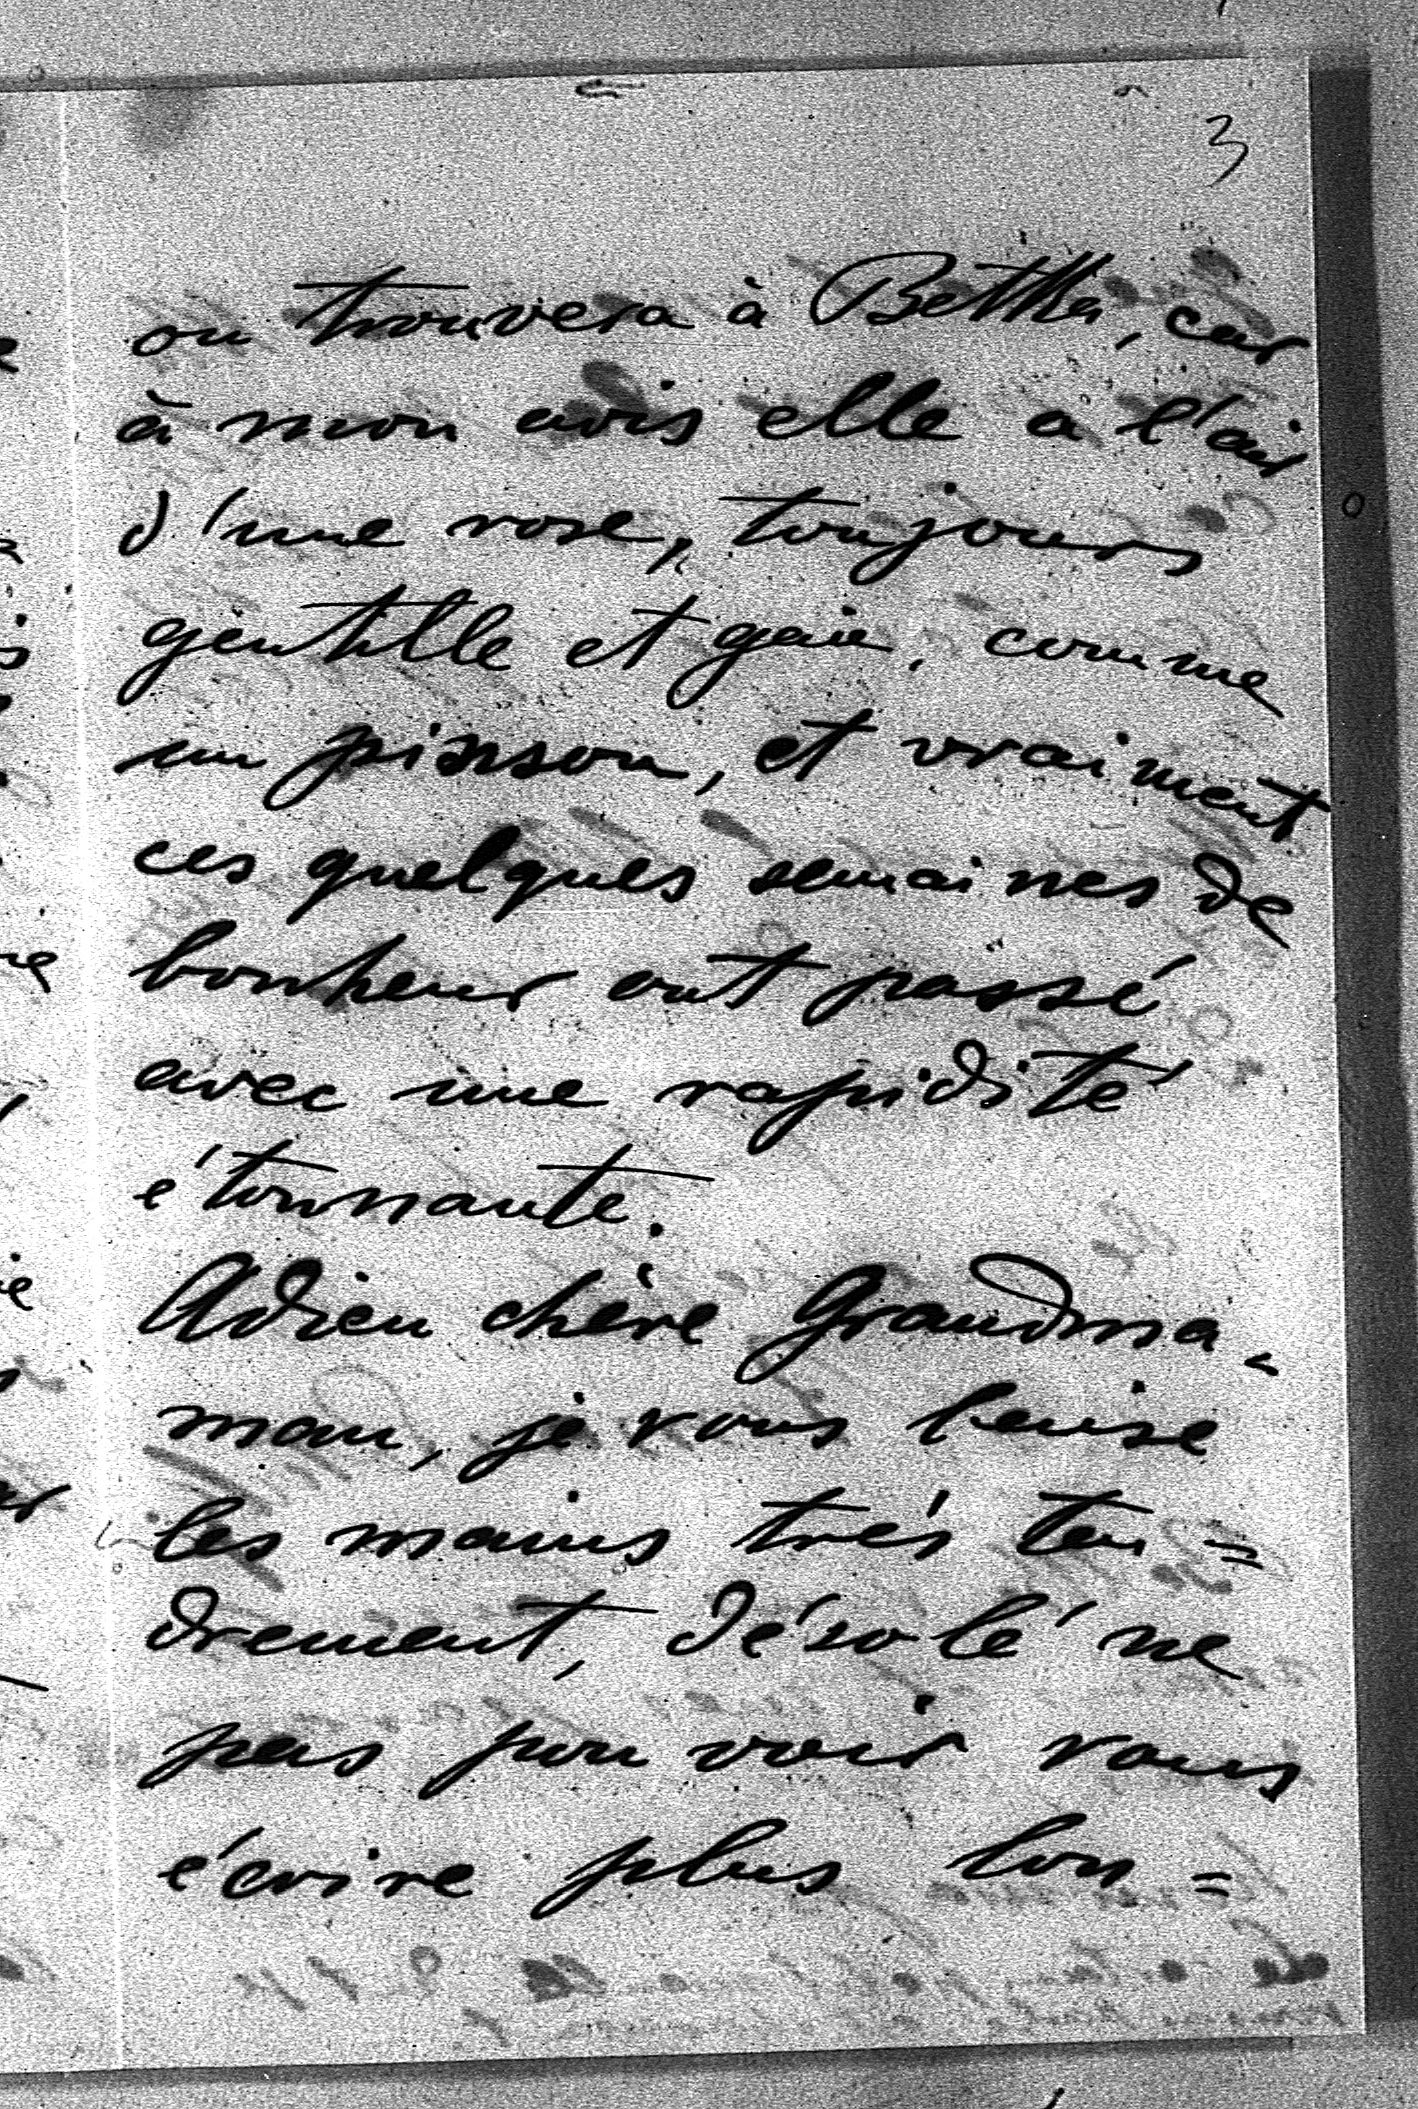 3
on trouvera à Betka, car
à mon avis elle a l'air
d'une rose, toujours
gentille et gaie, comme
un pinson, et vraiment
ces quelques semaines de
bonheur ont passé
avec une rapidité
étonnante.
Adieu chère Grandma-
man, je vous baise
les mains très ten=
drement, désolé ne
pas pouvoir vous
écrire plus lon=